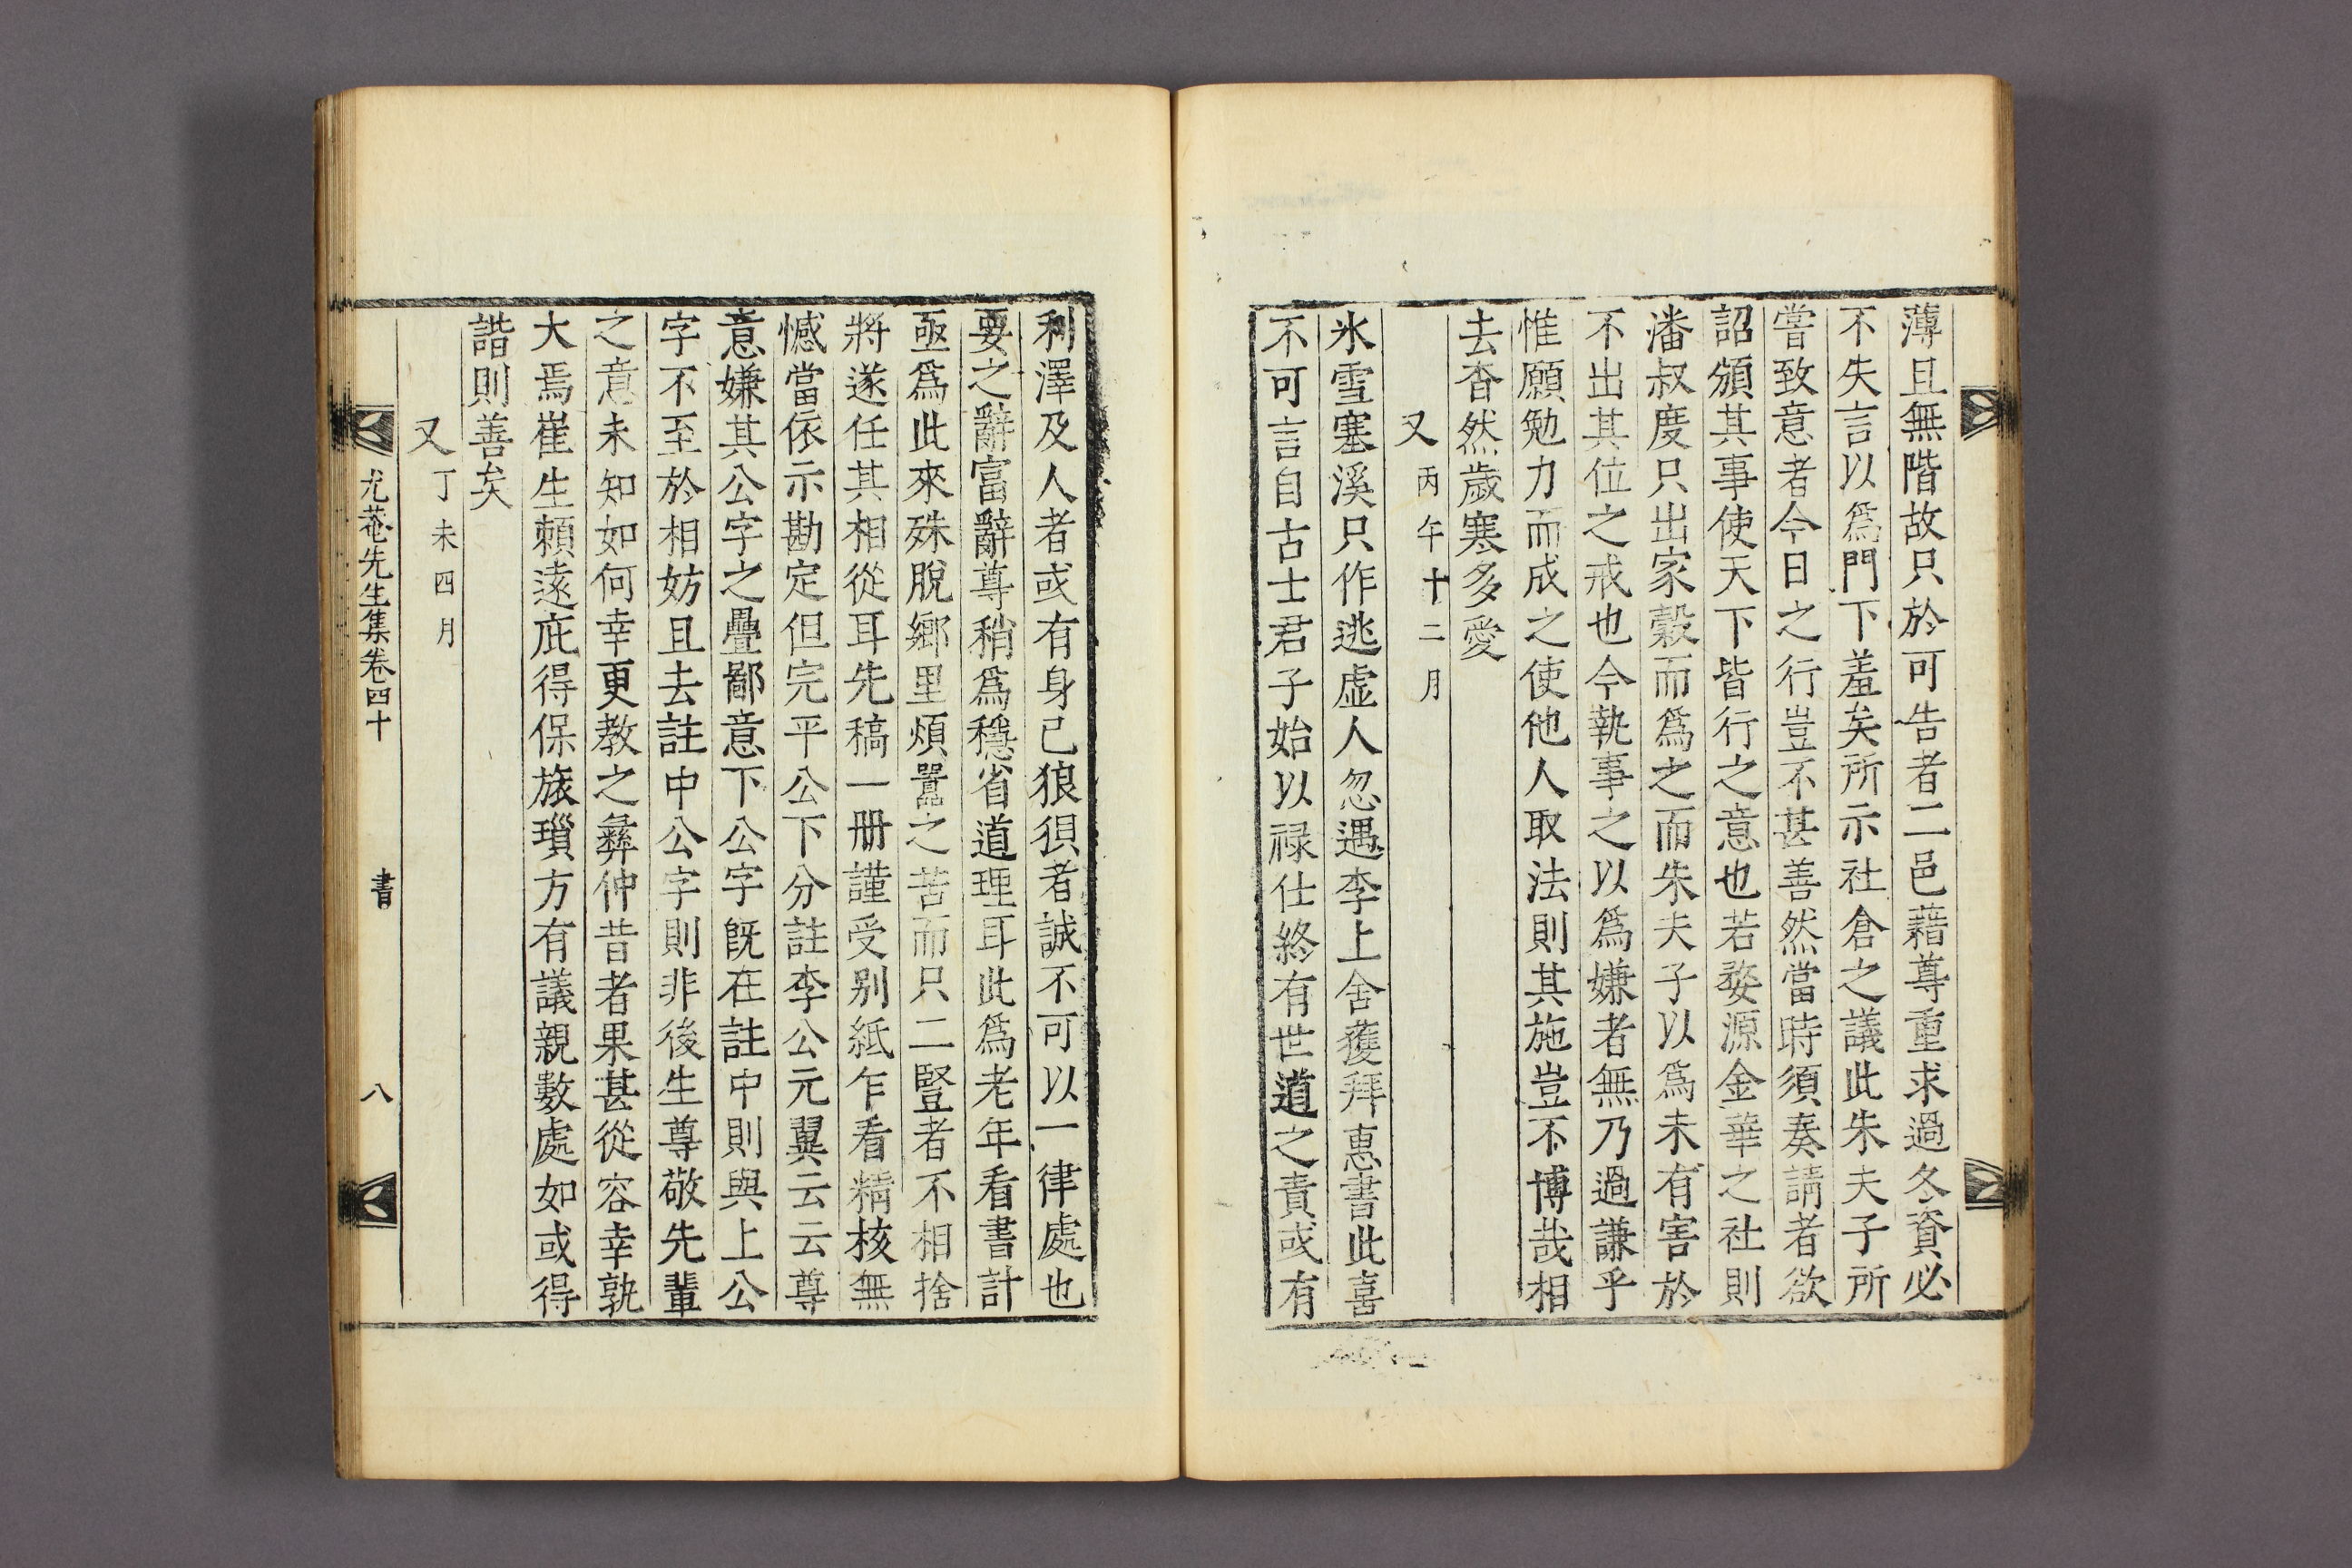 薄且無階故只於可告者二邑藉尊重求過冬資必
不失言以爲門下羞矣所示社倉之議此朱夫子所
嘗致意者今日之行豈不甚善然當時須奏請者欲
詔頒其事使天下皆行之意也若婺源金華之社則
潘叔度只出家穀而爲之而朱夫子以爲未有害於
不出其位之戒也今執事之以爲嫌者無乃過謙乎
惟願勉力而成之使他人取法則其施豈不博哉相
去杳然歲寒多愛
又 丙午十二月
氷雪塞溪只作逃虛人忽遇李上舍獲拜惠書此喜
不可言自古士君子始以祿仕終有世道之責或有
利澤及人者或有身己狼狽者誠不可以一律處也
要之辭富辭尊稍爲穩省道理耳此爲老年看書計
亟爲此來殊脫鄉里煩囂之苦而只二豎者不相捨
將遂任其相從耳先稿一册謹受别紙乍看精核無
憾當依示勘定但完平公下分註李公元翼云云尊
意嫌其公字之疊鄙意下公字旣在註中則與上公
字不至於相妨且去註中公字則非後生尊敬先輩
之意未知如何幸更教之彛仲昔者果甚從容幸孰
大焉崔生賴遠庇得保旅瑣方有議親數處如或得
諧則善矣
又 丁未四月
尤菴先生集卷四十 書 八